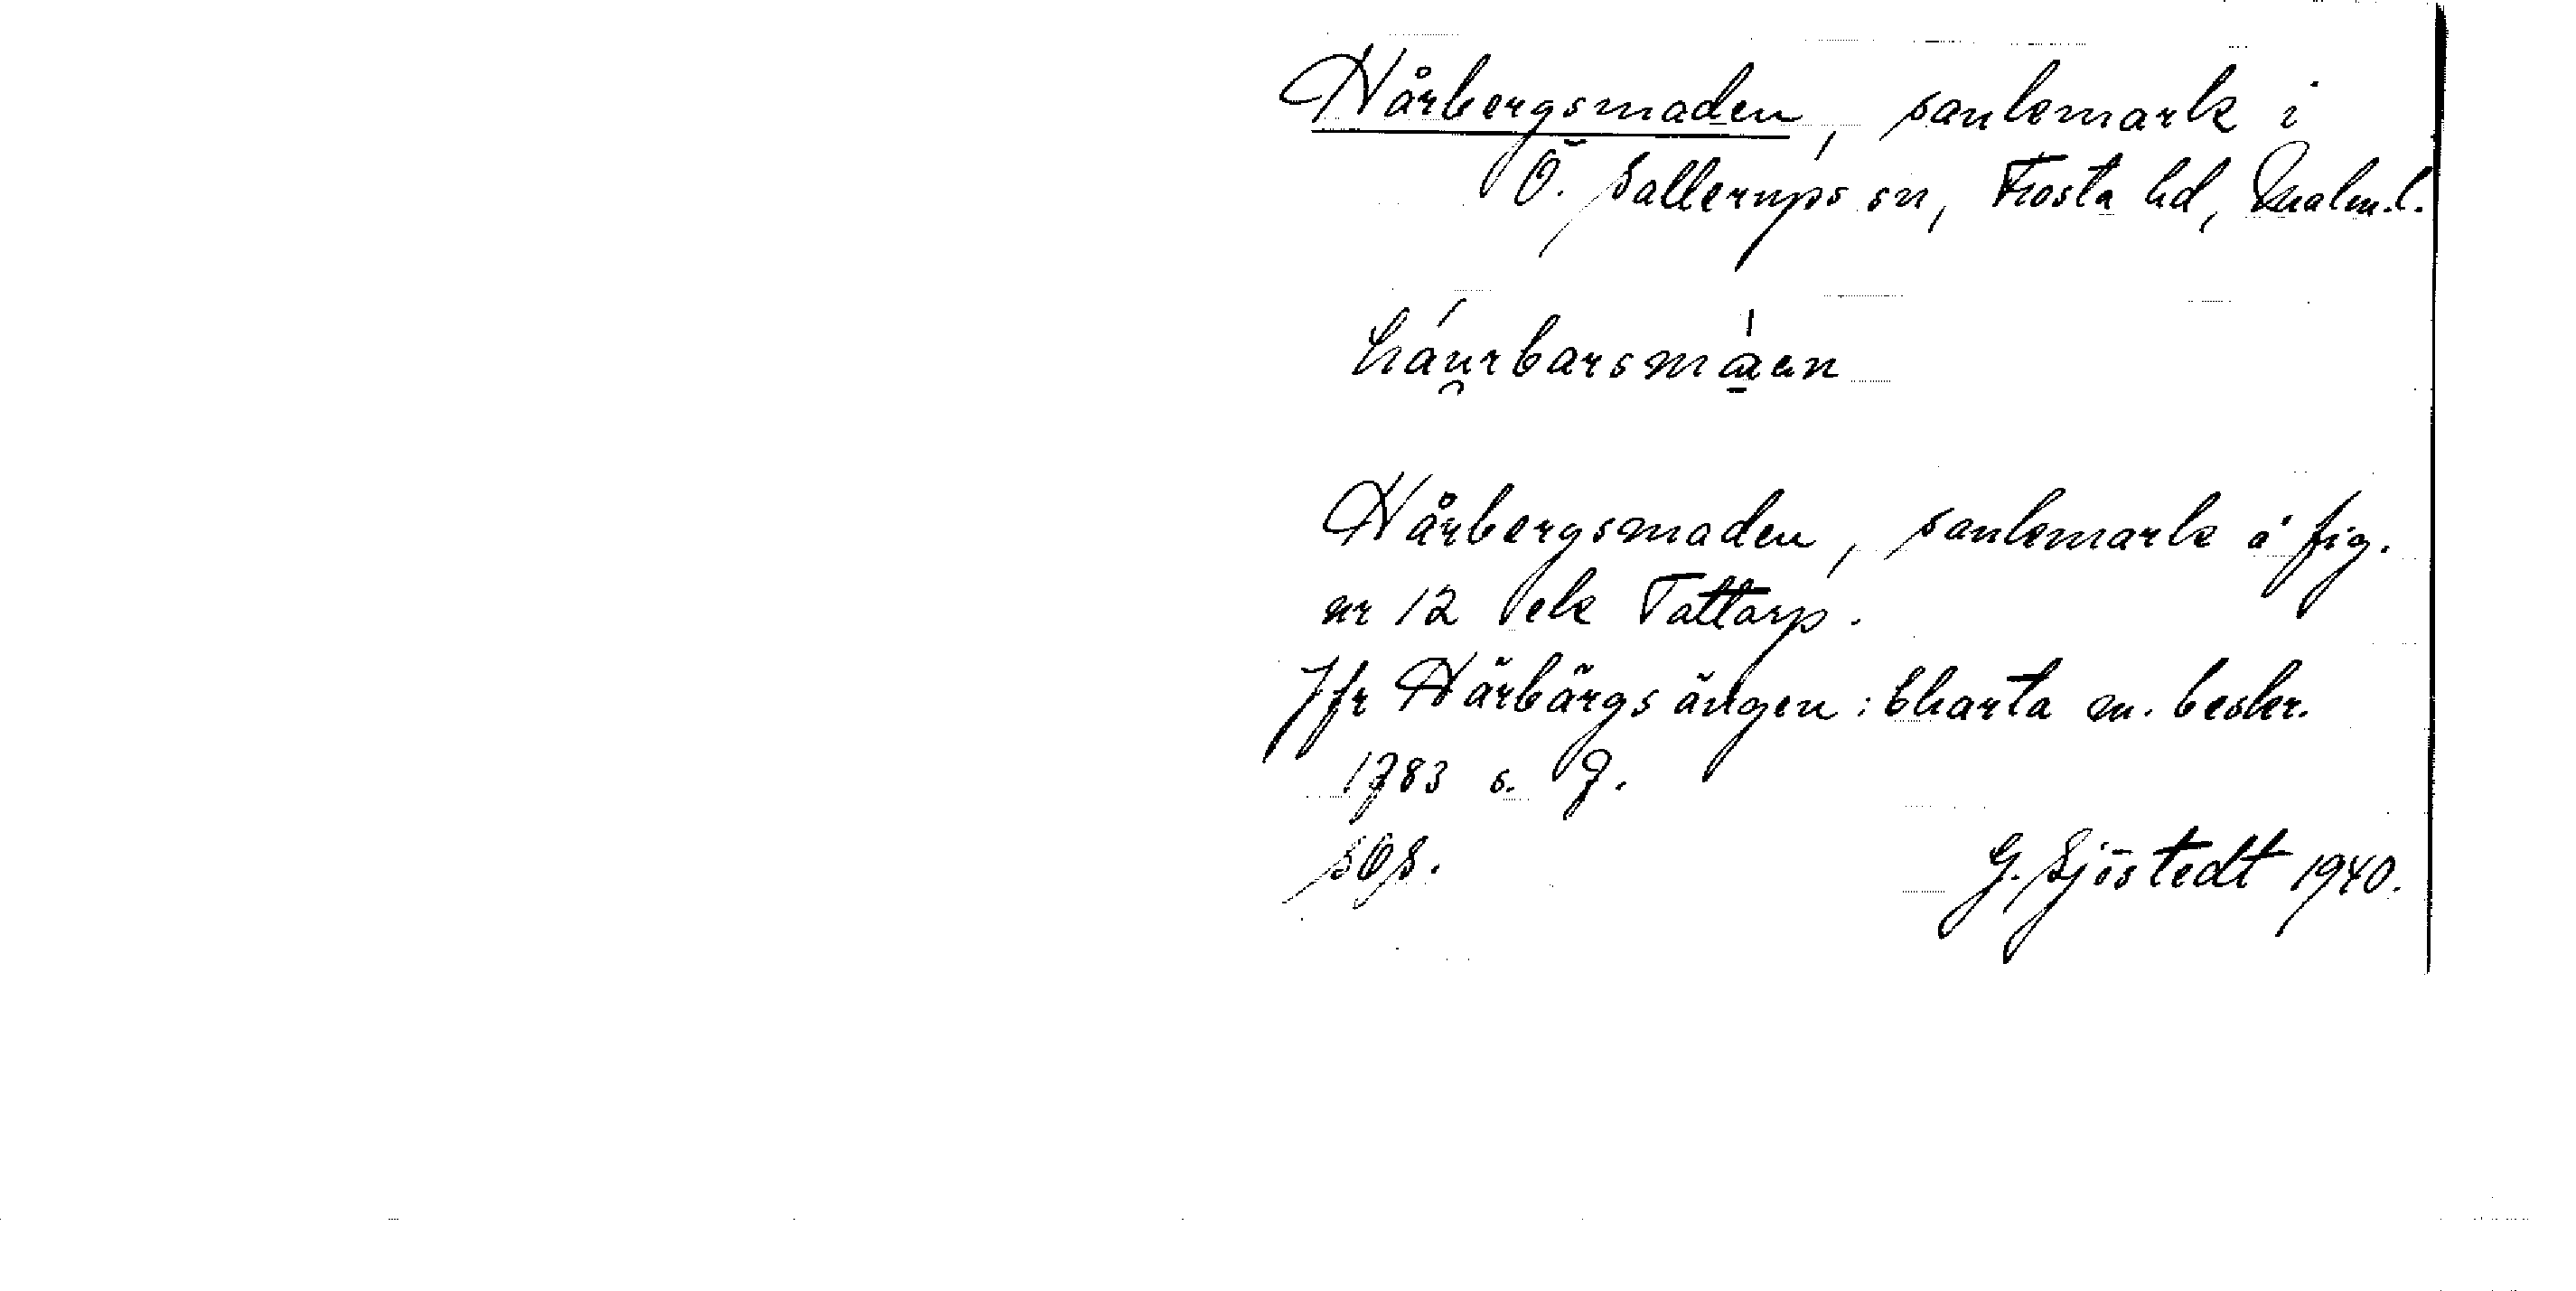 Hårbergsmaden, sankmark i
Ö. Sallerups sn, Frosta hd, Malm.l.
háu̯rbarsmàen
Hårbergsmaden, sankmark å fig.
nr 12 ek Tattarp.
Jfr Härbärgs ängen: Charta m. beskr.
1783 s. 7.
SOS.
G. Sjöstedt 1940.